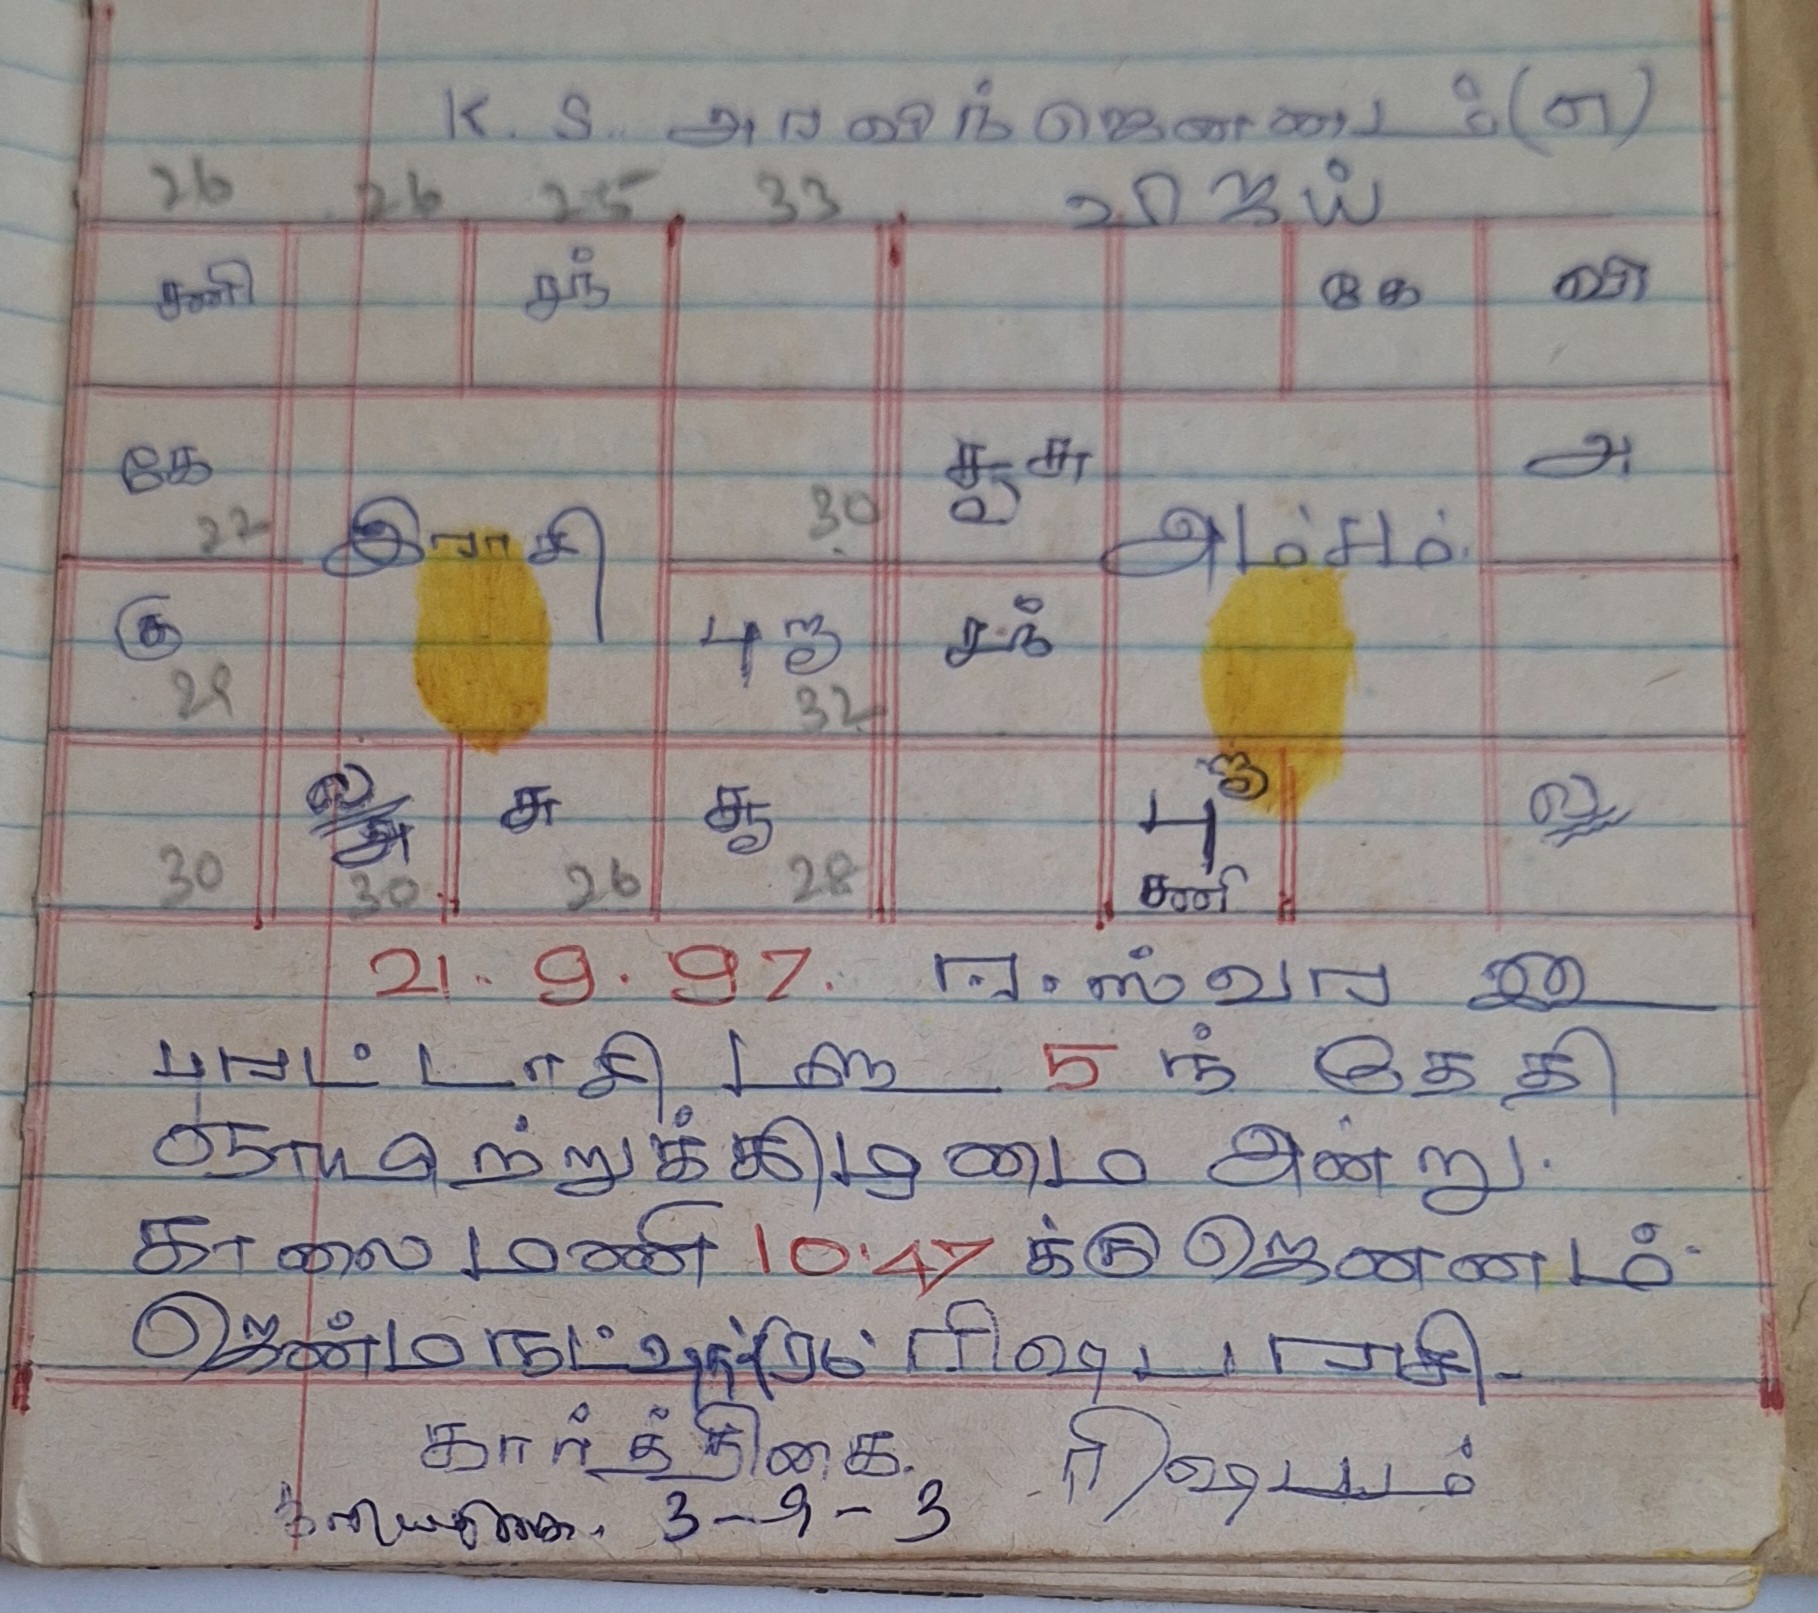 K. S. அரவிந் ஜெனனம் (எ)
26 26 25 33 விஜய்
சனி சந் கே வி
கே சூ சு அ
22 இராசி 30 அம்சம்
கு புரு சந்
29 32
ல/ அ சு சூ புரு சனி ல/
30 30 26 28
21. 9. 97. ஈ.ஸ்வர ௵
புரட்டாசி ௴ 5 ந் தேதி
ஞாயிற்றுக்கிழமை அன்று.
காலை மணி 10.47 க்கு ஜெனனம்.
ஜென்ம நட்சத்திரம் ரிஷப ராசி.
கார்த்திகை. ரிஷபம்
3-9-3